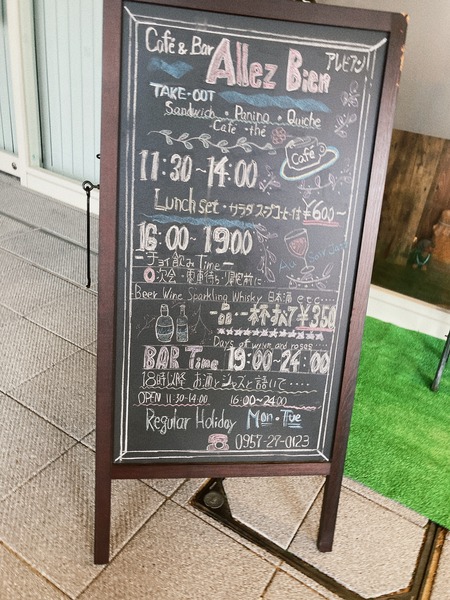 Café & Bar
Allez Bien
アレビアン
TAKE-OUT
Sandwich・Panino・Quiche
Café・thé
Café
11:30~14:00
Lunch set・サラダスープコーヒー付 ¥600~
16:00~19:00
ーチョイ飲みTimeー
0次会・電車待ち・帰宅前に
Beer Wine Sparkling Whisky 日本酒 etc...
一品・一杯 ¥350
Days of wine and roses...
BAR Time 19:00-24:00
18時以降 お酒とジャズと語いで....
OPEN 11:30-14:00 16:00~24:00
Regular Holiday Mon・Tue
☎ 0957-27-0123